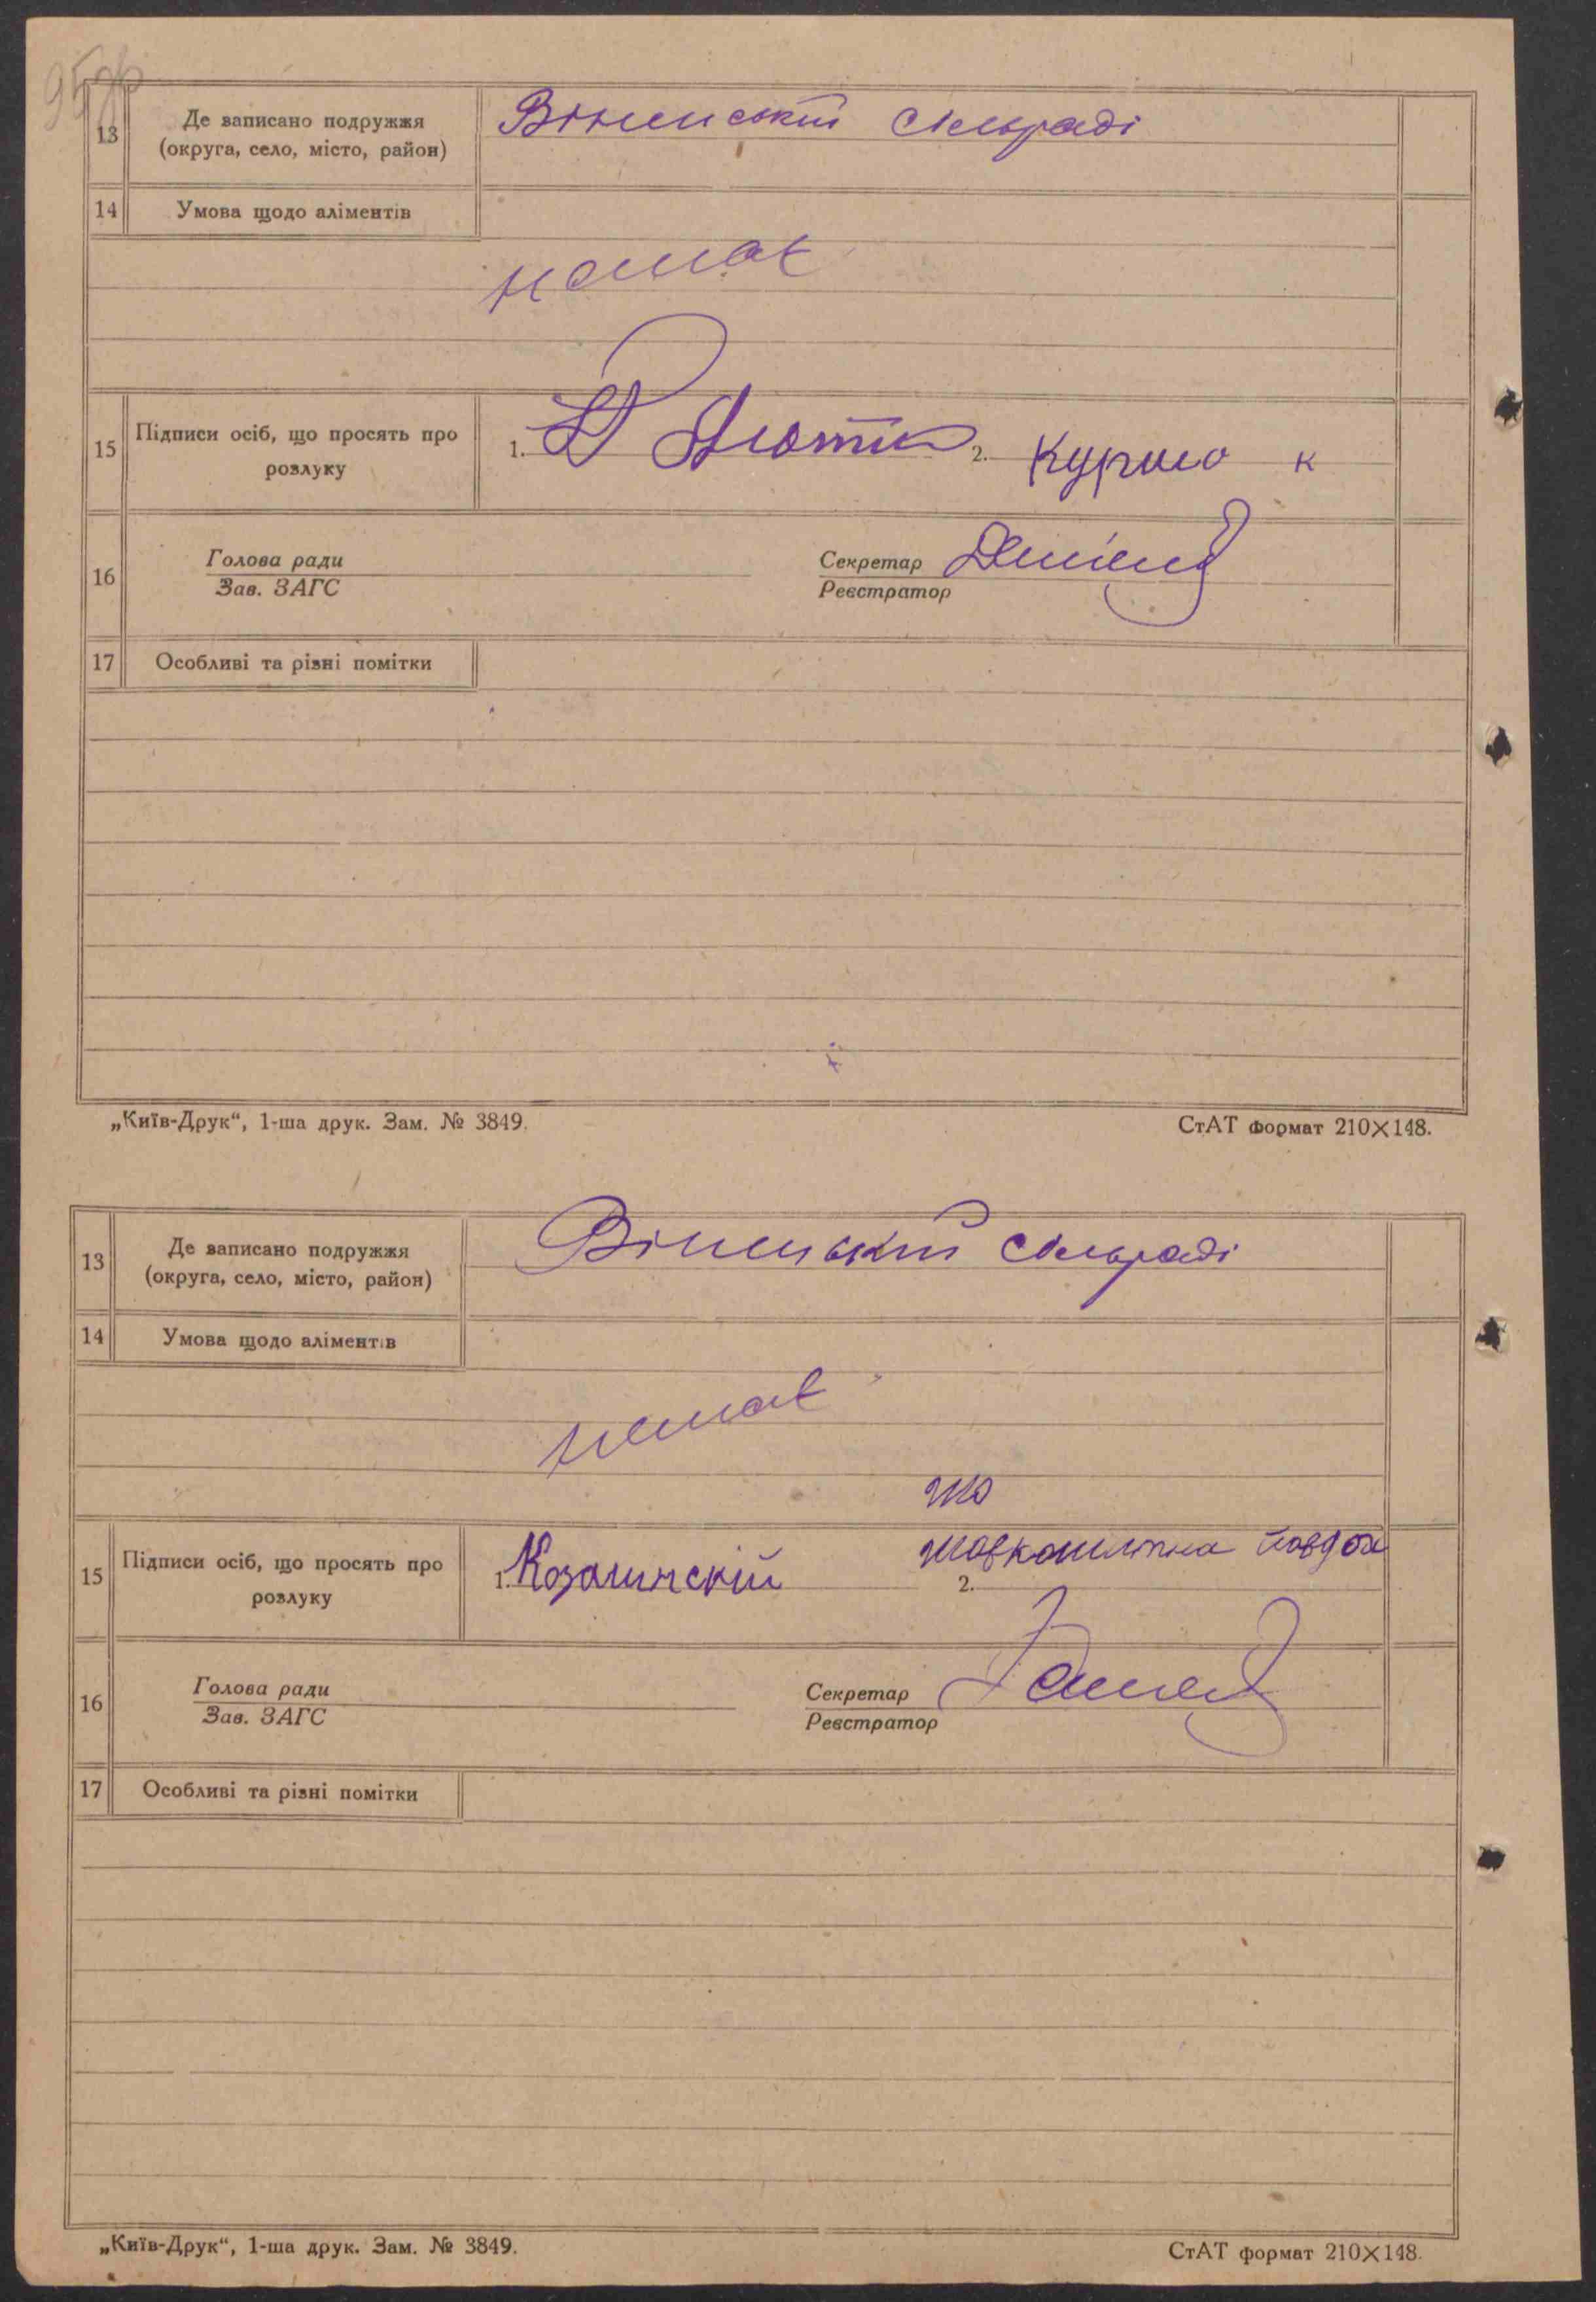 13
Де записано подружжя
(округа, село, місто, район)
сільраді
14
Умова щодо аліментів
немає
15
Підписи осіб, що просять про
розлуку
1.
2. Курило к
16
Голова ради
Зав. ЗАГС
Секретар
Реєстратор
17
Особливі та різні помітки
„Київ-Друк“, 1-ша друк. Зам. № 3849.
СтАТ формат 210×148.
13
Де записано подружжя
(округа, село, місто, район)
сільраді
14
Умова щодо аліментів
немає
15
Підписи осіб, що просять про
розлуку
1. Козачинскій
2.
16
Голова ради
Зав. ЗАГС
Секретар
Реєстратор
17
Особливі та різні помітки
„Київ-Друк“, 1-ша друк. Зам. № 3849.
СтАТ формат 210×148.